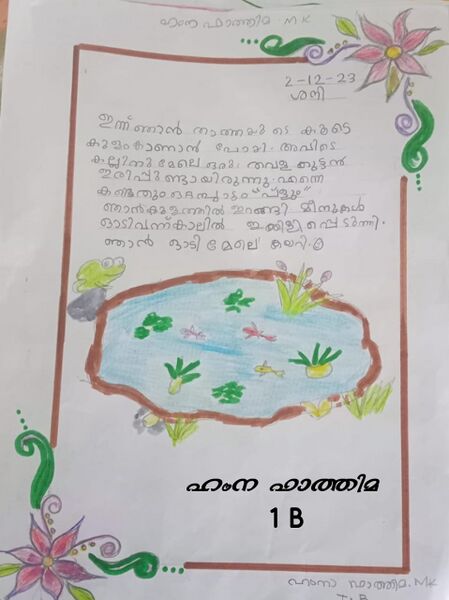 ഹംന ഫാത്തിമ. M.K
2-12-23
ശനി
ഇന്ന് ഞാൻ താത്തയുടെ കൂടെ
കുളംകാണാൻ പോയി. അവിടെ
കല്ലിനു മേലെ ഒരു തവള കുട്ടൻ
ഇരിപ്പുണ്ടായിരുന്നു. എന്നെ
കണ്ടതും ഒറ്റച്ചാട്ടം "പ്ളും"
ഞാൻ കുളത്തിൽ ഇറങ്ങി മീനുകൾ
ഓടിവന്ന് കാലിൽ ഇക്കിളിപ്പെടുത്തി.
ഞാൻ ഓടി മേലെ കയറി.
ഹംന ഫാത്തിമ
1 B
ഹംന ഫാത്തിമ. MK
I.B